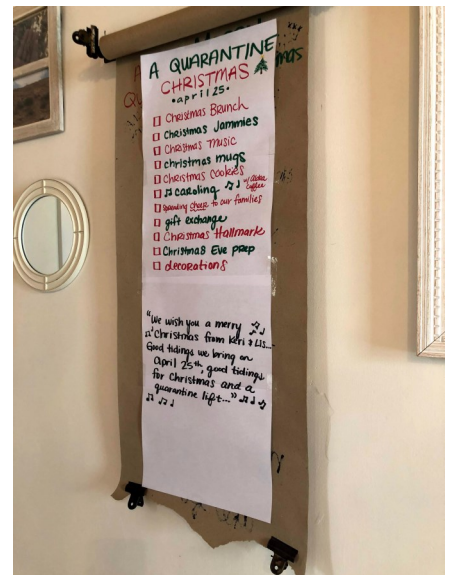 A QUARANTINE
CHRISTMAS
•april 25•
Christmas Brunch
Christmas Jammies
Christmas Music
christmas mugs
Christmas Cookies
caroling
spreading cheer to our families
gift exchange
Christmas Hallmark
Christmas Eve prep
decorations
"We wish you a merry
Christmas from Keri & Lis...
Good tidings we bring on
April 25th, good tidings
for Christmas and a
quarantine lift..."
mas